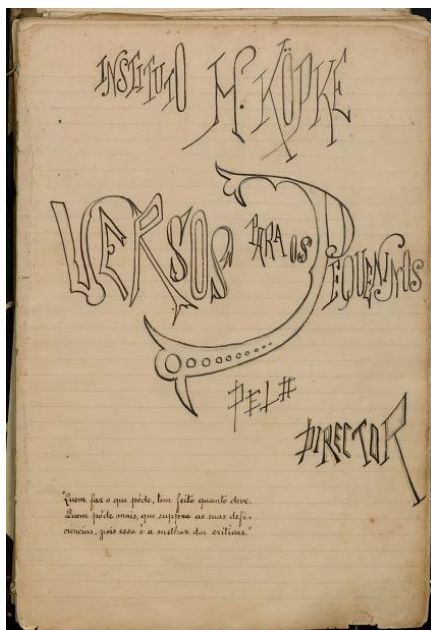 INSTITUTO H. KÖPKE
VERSOS PARA OS PEQUENINOS
PELO
DIRECTOR
"Quem faz o que póde, tem feito quanto deve.
Quem póde mais, que suppra as suas defi-
ciencias, pois essa é a melhor das criticas."